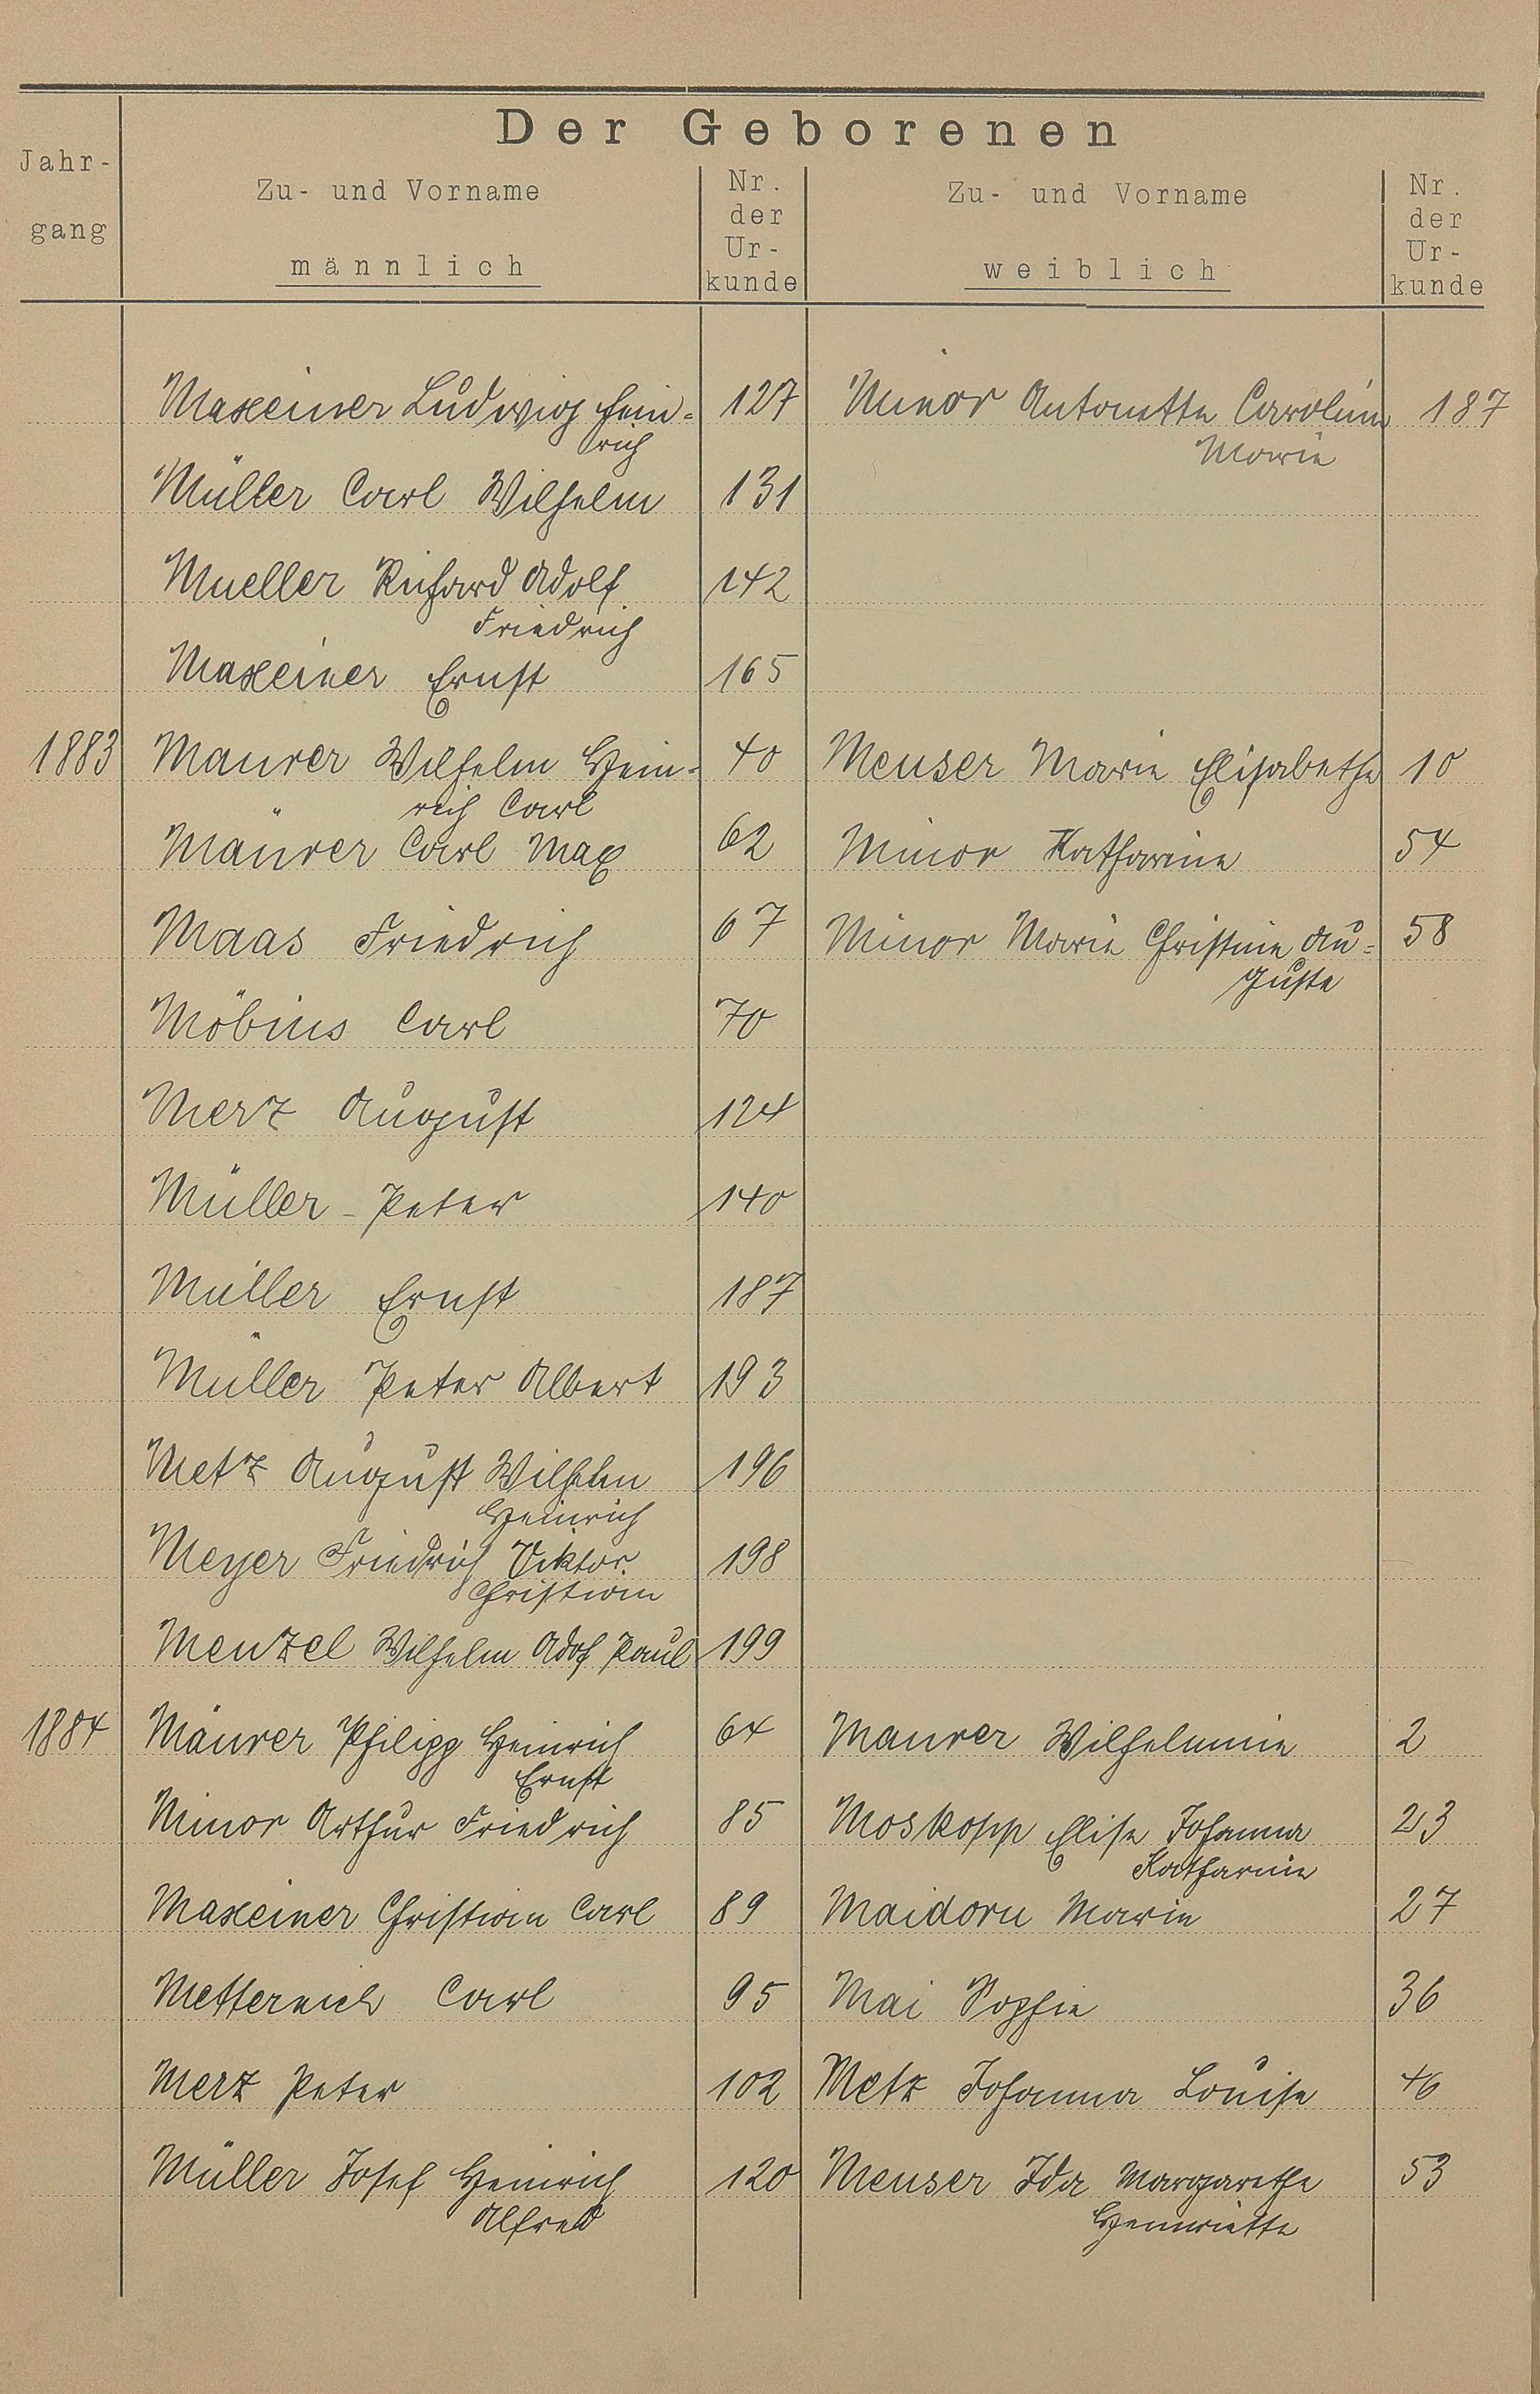 Der Geborenen
Jahr-
gang
Zu- und Vorname
männlich
Nr.
der
Ur-
kunde
Zu- und Vorname
weiblich
Nr.
der
Ur-
kunde
Maxeiner Ludwig Hein- 127 Minor Antonette Caroline 187
rich Marie
Müller Carl Wilhelm 131
Mueller Richard Adolf 142
Friedrich
Maxeiner Ernst 165
1883 Maurer Wilhelm Hein- 40 Meuser Marie Elisabethe 10
rich Carl
Mäurer Carl Max 62 Minor Katharine 54
Maas Friedrich 67 Minor Marie Christine Au- 58
guste
Möbius Carl 70
Merz August 124
Müller - Peter 140
Müller Ernst 187
Müller Peter Albert 193
Metz August Wilhelm 196
Heinrich
Meyer Friedrich Viktor 198
Christian
Menzel Wilhelm Adof Paul 199
1884 Mäurer Philipp Heinrich 64 Maurer Wilhelmine 2
Ernst
Minor Arthur Friedrich 85 Moskopp Elise Johanna 23
Katharine
Maxeiner Christian Carl 89 Maidorn Marie 27
Metternich Carl 95 Mai Sophie 36
Merz Peter 102 Metz Johanna Louise 46
Müller Josef Heinrich 120 Meuser Ida Margarethe 53
Alfred Henriette